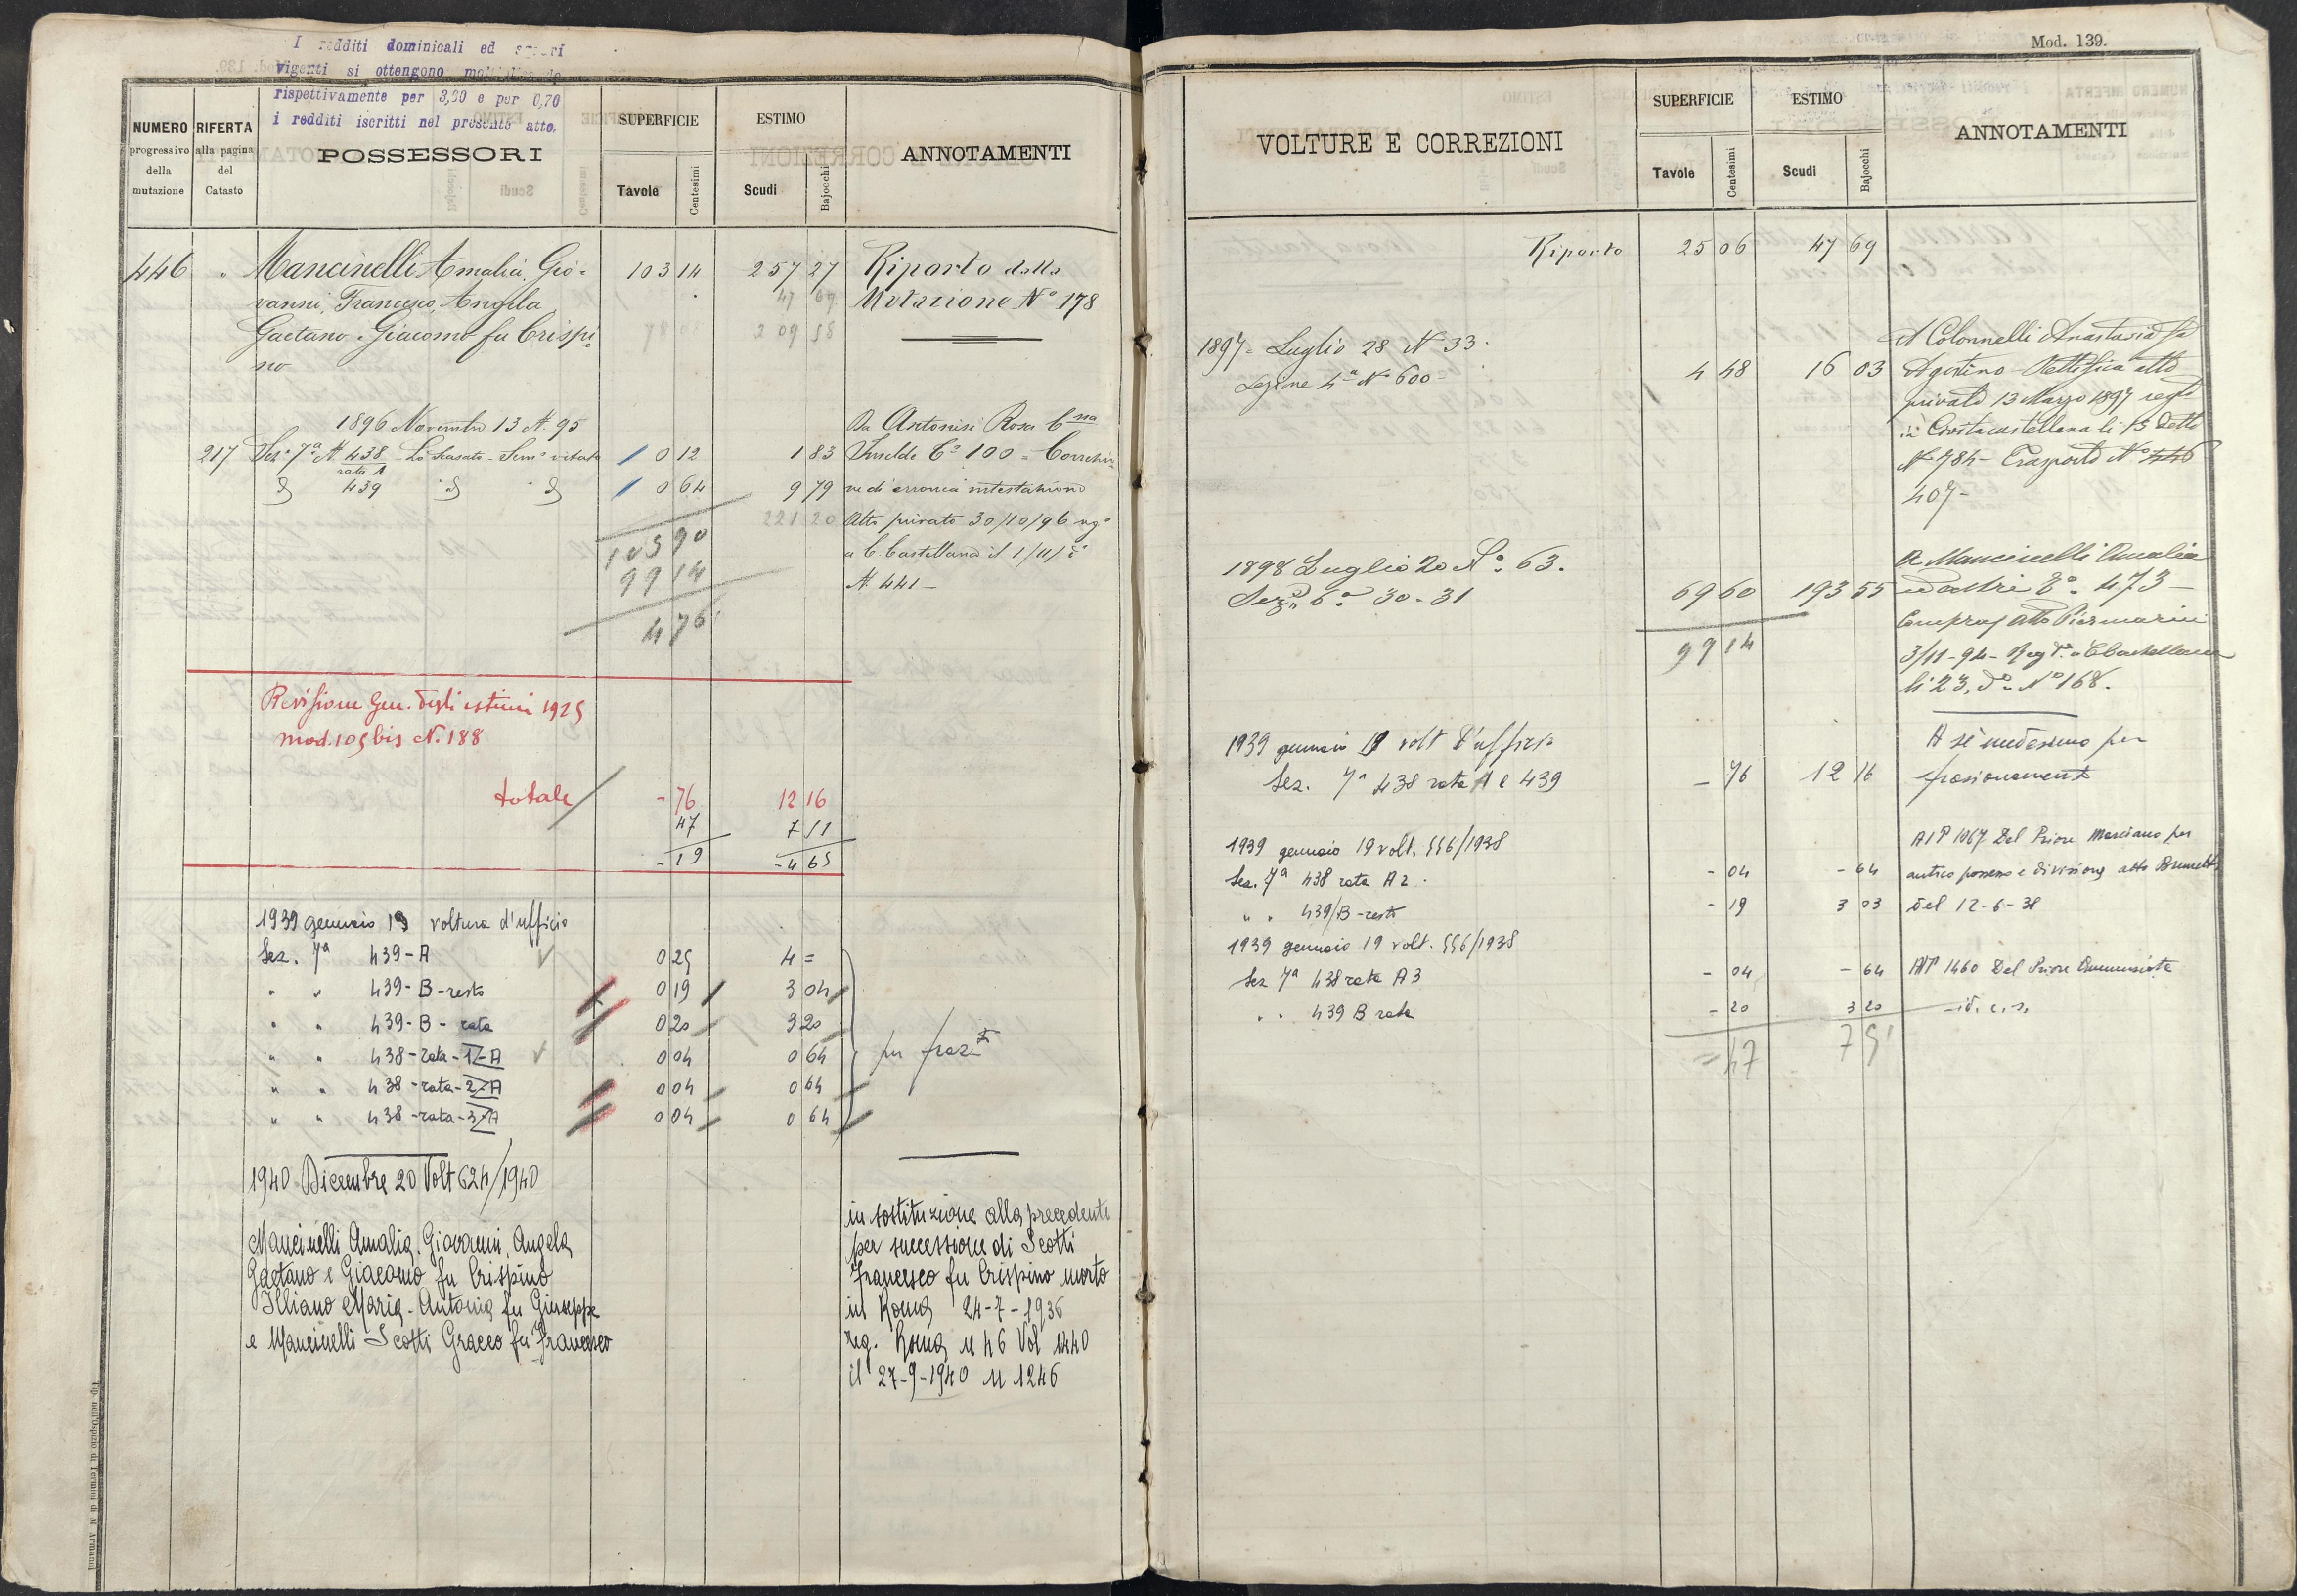 I redditi dominicali ed
vigenti si ottengono
rispettivamente per 3,60 e per 0,70
i redditi iscritti nel presente atto.
NUMERO progressivo della mutazione
RIFERTA alla pagina del Catasto
POSSESSORI
SUPERFICIE
Tavole Centesimi
ESTIMO
Scudi Bajocchi
ANNOTAMENTI
446 " Mancinelli Amalia, Gio= 103 14 257 27 Riporto dalla
vanni, Francesco, Angela 47 69 Mutazione N° 178
Gaetano e Giacomo fu Crispi= 78 08 209 58
no
1896 Novembre 13 N. 95 Da Antonisi Rosa
217 Sez. 7ª N. 438 rata A Lo Scasato - Sem° vitato 0 12 1 83 100 =
" 439 " " 0 64 9 79 ne di erronea intestazione
221 20 Atto privato 30/10/96 reg°
103 90 a C. Castellana il 1/11/
99 14 N. 441 -
4 76
Revisione Gen. degli estimi 1925
mod. 105 bis N. 188
totale - 76 12 16
47 7 51
- 19 - 4 65
1939 gennaio 19 voltura d'ufficio
Sez. 7ª 439 - A 0 25 4 =
" " 439 - B - resto 0 19 3 04
" " 439 - B - rata 0 20 3 20
" " 438 - rata - 1 - A 0 04 0 64 per fraz.
" " 438 - rata - 2 - A 0 04 0 64
" " 438 - rata - 3 - A 0 04 0 64
1940 Dicembre 20 Volt 624/1940
Mancinelli Amalia, Giovanni, Angela
Gaetano e Giacomo fu Crispino
Illiano Maria-Antonia fu Giuseppe
e Mancinelli Scotti Gracco fu Francesco
in sostituzione alla precedente
per successione di Scotti
Francesco fu Crispino morto
in Roma 24-7-1936
reg. Roma n 46 Vol 1440
il 27-9-1940 n 1246
Tip. nell'Ospizio di Termini di N. Armanni
Mod. 139.
VOLTURE E CORREZIONI
SUPERFICIE
Tavole Centesimi
ESTIMO
Scudi Bajocchi
ANNOTAMENTI
Riporto 25 06 47 69
1897 = Luglio 28 N 33. A Colonnelli Anastasia fu
Sezione 4ª N. 600 = 4 48 16 03 Agostino - Rettifica atto
privato 13 Marzo 1897 reg.
in Civitacastellana li 15 detto
N 784 - Trasporto N° 446
407 -
1898 Luglio 20 N°. 63. A Mancinelli Amalia
Sez. 6ª 30 - 31 69 60 193 55 ed altri 473 -
99 14 Compra, atto Piermarini
3/11-94 - Reg. a C. Castellana
li 23, d° N° 168.
1939 gennaio 19 volt d'ufficio A sè medesimo per
Sez. 7ª 438 rata A e 439 - 76 12 16 frazionamento
1939 gennaio 19 volt. 556/1938 Al P 1067 Del Priore Marciano per
Sez. 7ª 438 rata A 2. - 04 - 64 antico possesso e divisione atto Brunelli
" " 439/B - resto - 19 3 03 del 12-6-38
1939 gennaio 19 volt. 556/1938
Sez 7ª 438 rata A 3 - 04 - 64 Al P 1460 Del Priore Annunziata
" " 439 B rata - 20 3 20 - id. c. s.
= 47 7 51